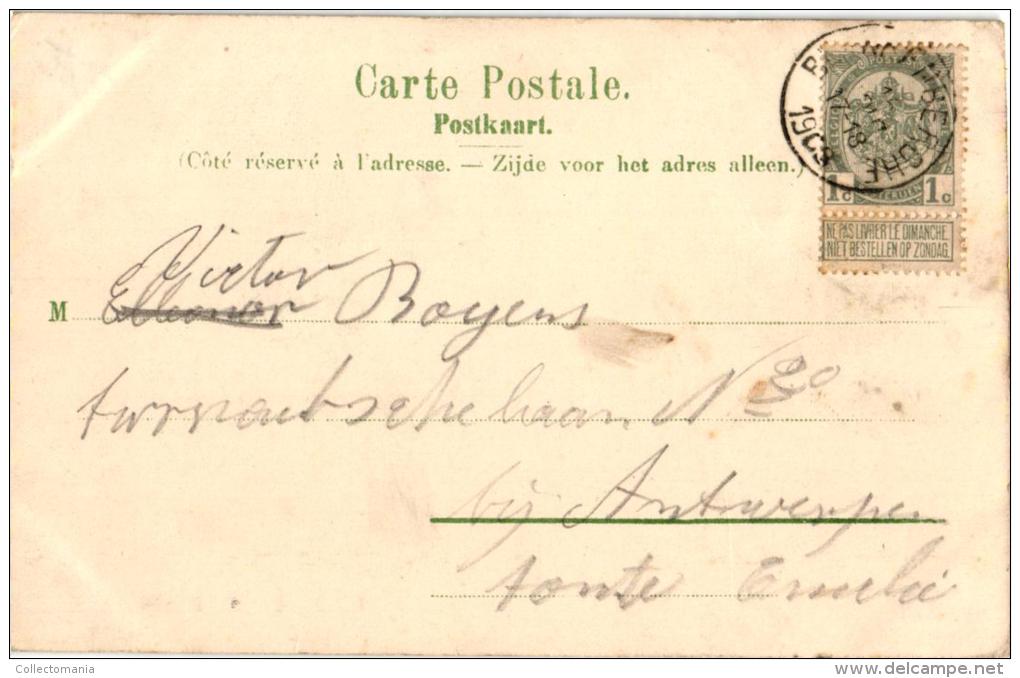 Carte Postale.
Postkaart.
(Côté réservé à l'adresse. — Zijde voor het adres alleen.)
1903
POSTES
1c 1c
NE PAS LIVRER LE DIMANCHE.
NIET BESTELLEN OP ZONDAG.
Victor
M Elleonor Boyens
laan N 20
bij Antwerpen
tante Emelie
Collectomania
delcampe.net